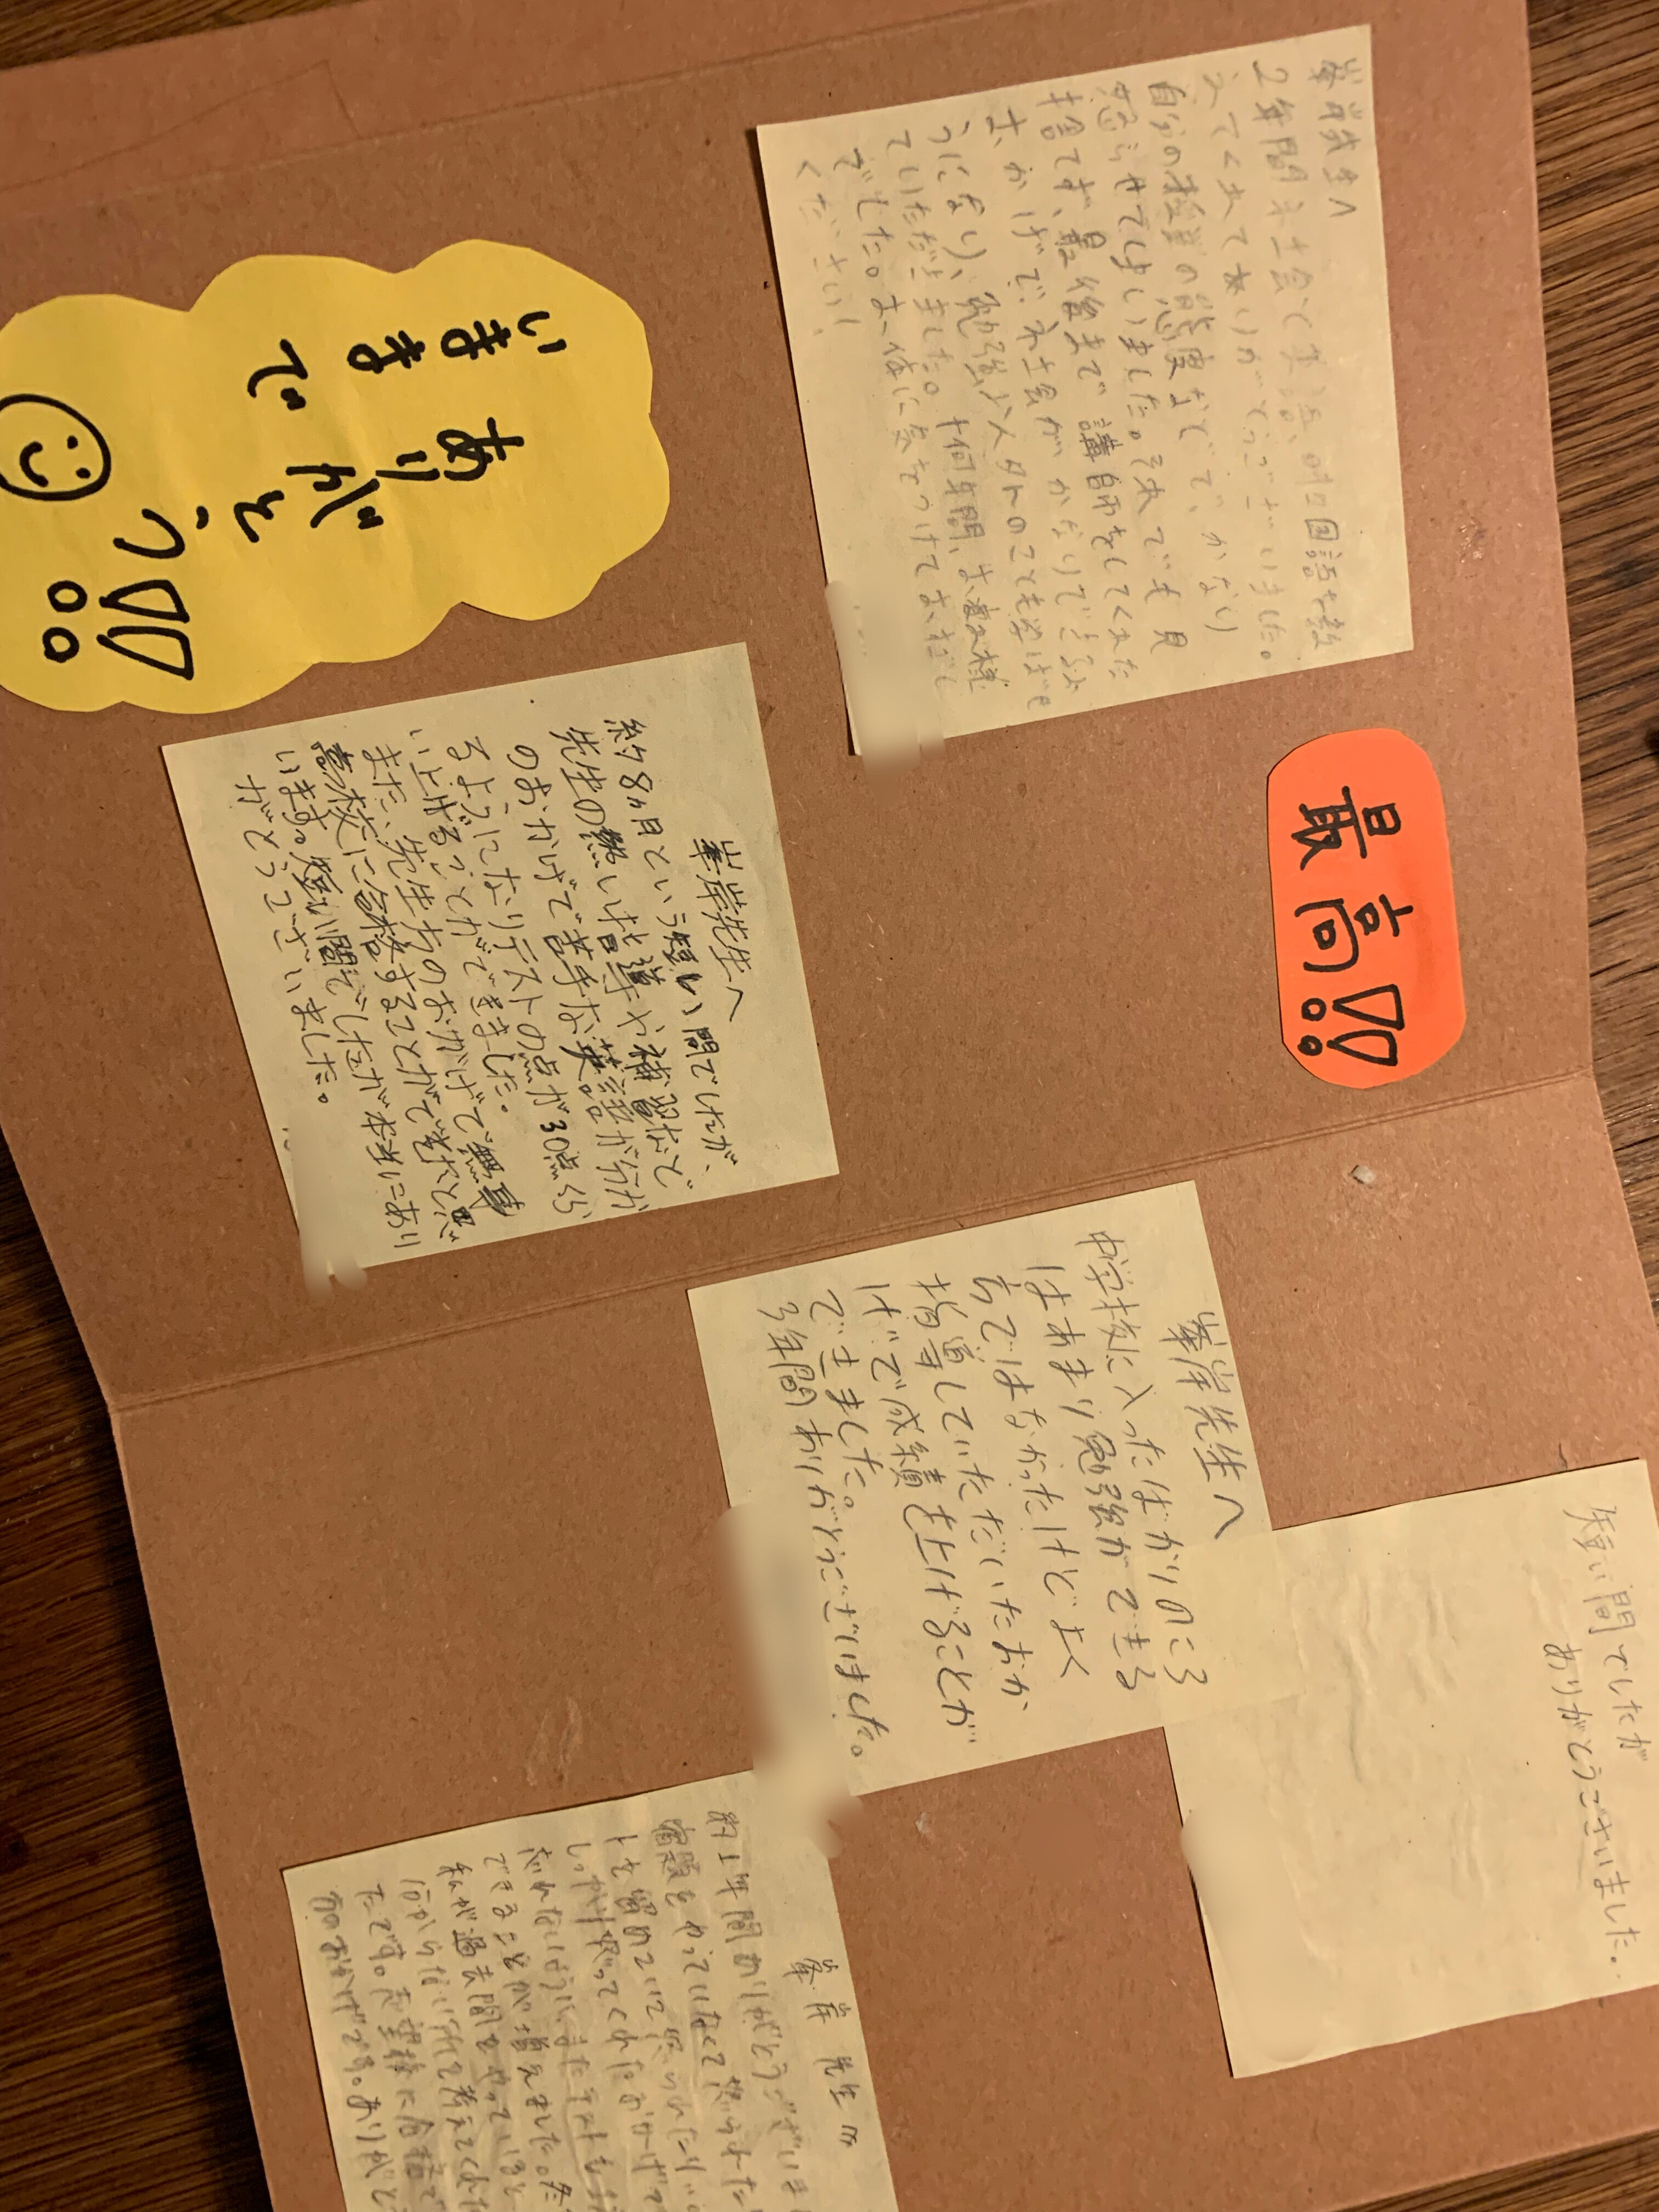 峯岸先生へ
2年間ネ士会で英語、時に国語を教
えてくれてありがとうございました。
自分の授業の態度などで、かなり
怒らせてしまいました。それでも見
捨てず、最後まで講師をしてくれた
おかげで、ネ士会がかなりできるよ
うになり、勉強以外のことも学ばせ
ていただきました。十何年間、お疲れ様
でした。お体に気をつけておすごし
ください!
最高!!
いままで
ありがとう!!
峯岸先生へ
約8ヶ月という短い間でしたが、
先生の熱い指導や補習など
のおかげで苦手な英語が分か
るようになりテストの点が30点くら
い上げることができました。
また、先生方のおかげで無事
高校に合格することができたと思
います。短い間でしたが本当にあり
がとうございました。
峯岸先生へ
中学校に入ったばかりのころ
はあまり勉強ができる
方ではなかったけどよく
指導していただいたおか
げで成績を上げることが
できました。
3年間ありがとうございました。
短い間でしたが
ありがとうございました。
峯岸 先生へ
約1年間ありがとうございま
宿題をやっていなくて怒られた
しっかり叱ってくれたおかげで
できることが増えました。
私が過去問をやっていると
分からない所を考えてくれた
たです。志望校に合格で
のおかげです。ありがと